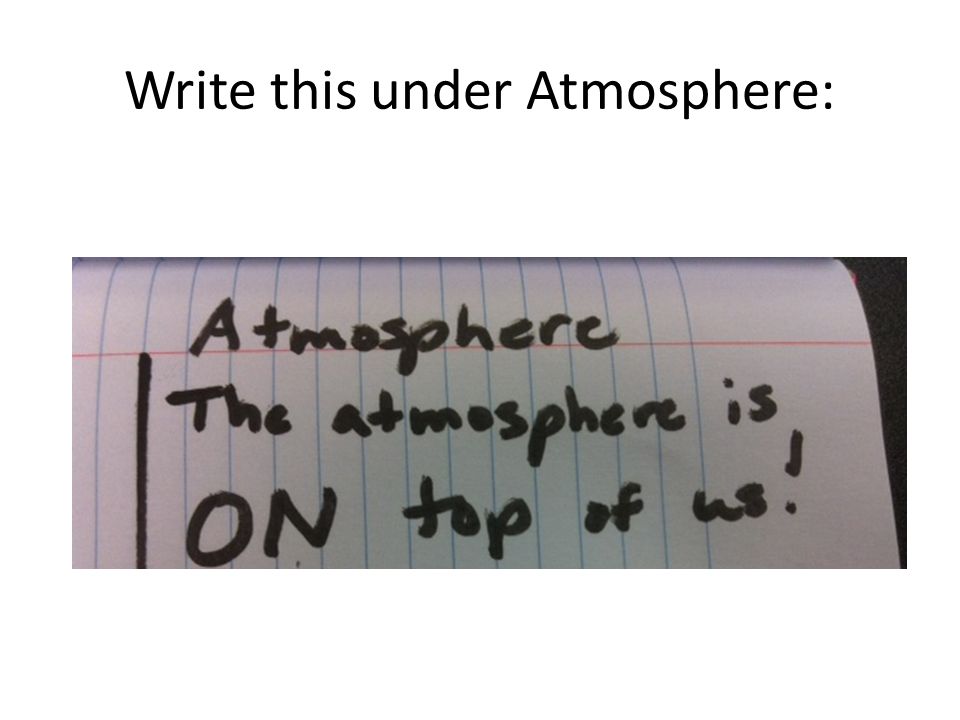 Write this under Atmosphere:
Atmosphere
The atmosphere is
ON top of us!